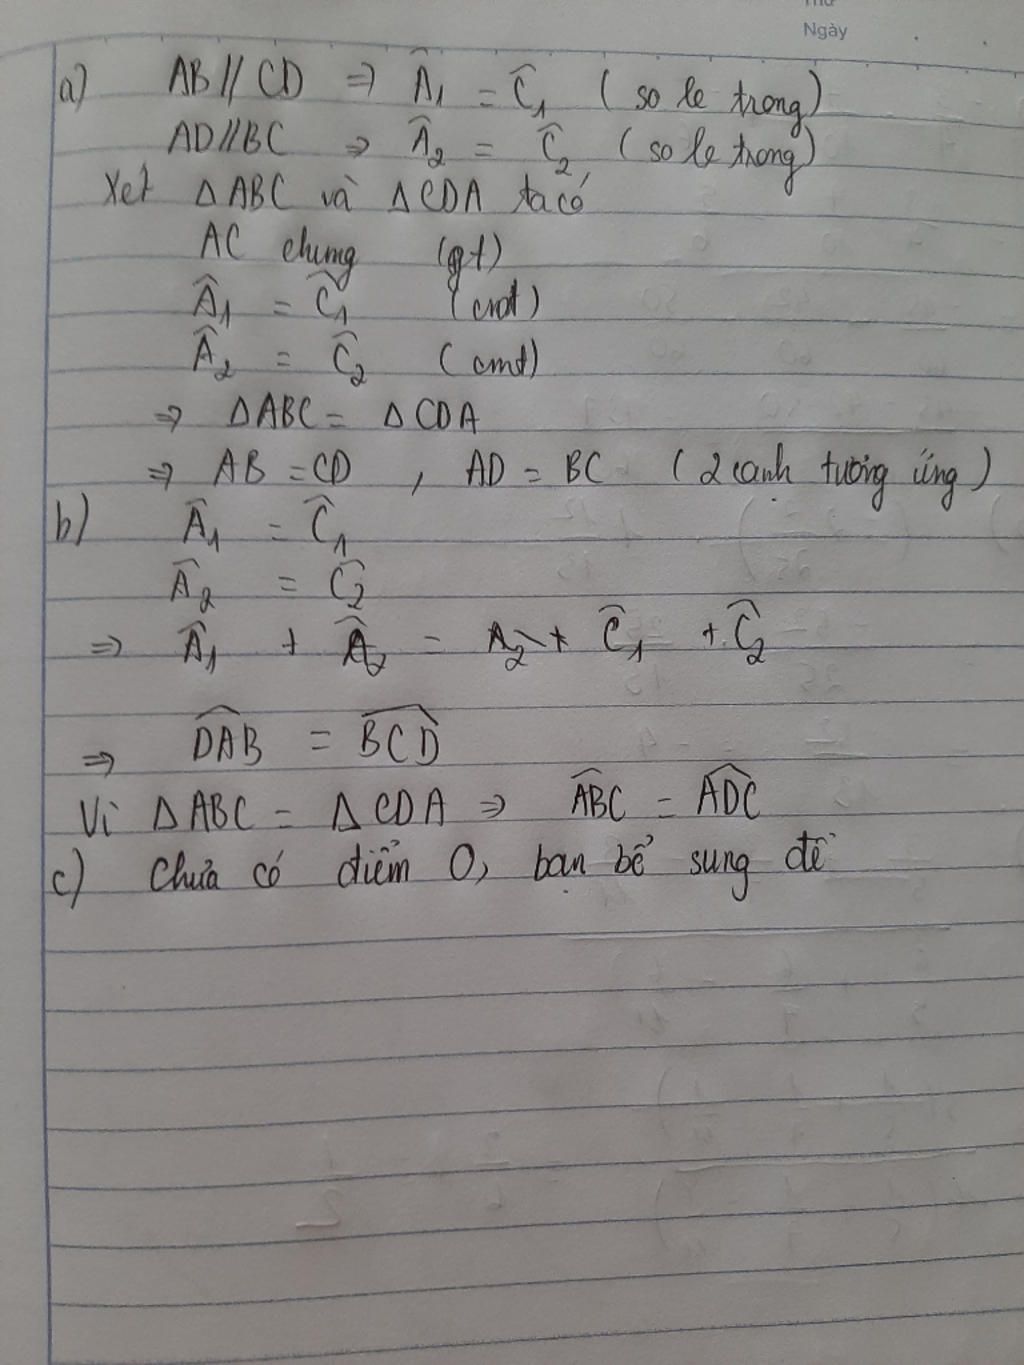 Thứ
Ngày
a) AB // CD ⇒ Â₁ = Ĉ₁ (so le trong)
AD // BC ⇒ Â₂ = Ĉ₂ (so le trong)
Xét ΔABC và ΔCDA ta có
AC chung (gt)
Â₁ = Ĉ₁ (cmt)
Â₂ = Ĉ₂ (cmt)
⇒ ΔABC = ΔCDA
⇒ AB = CD , AD = BC (2 cạnh tương ứng)
b) Â₁ = Ĉ₁
Â₂ = Ĉ₂
⇒ Â₁ + Â₂ = Ĉ₁ + Ĉ₂
⇒ DAB = BCD
Vì ΔABC = ΔCDA ⇒ ABC = ADC
c) Chưa có điểm O, bạn bổ sung đề